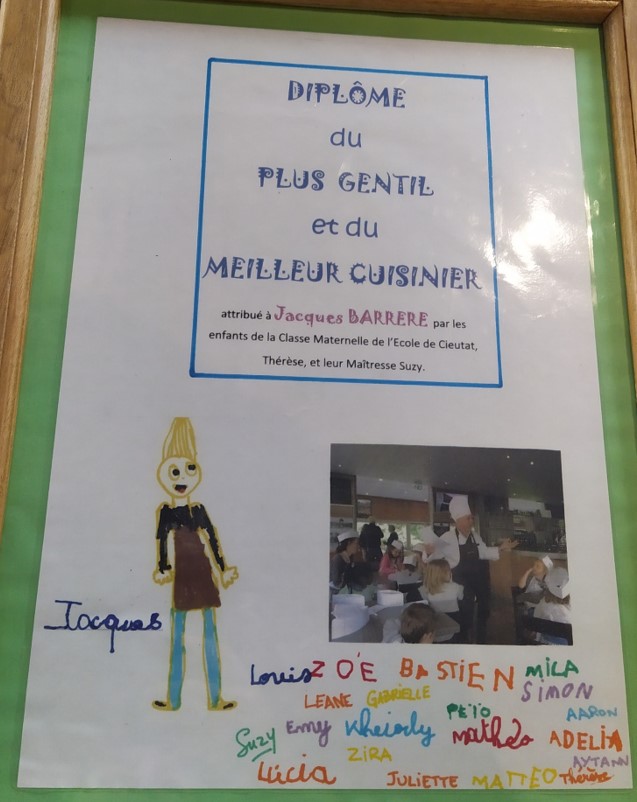 DIPLÔME
du
PLUS GENTIL
et du
MEILLEUR CUISINIER
attribué à Jacques BARRERE par les
enfants de la Classe Maternelle de l'Ecole de Cieutat,
Thérèse, et leur Maîtresse Suzy.
Jacques
Louis ZOÉ BASTIEN MILA
LEANE GABRIELLE SIMON
Suzy Emy PEÏO Mathés AARON
ADELIA
ZIRA AYTANN
Lucia JULIETTE MATTEO Thérèse